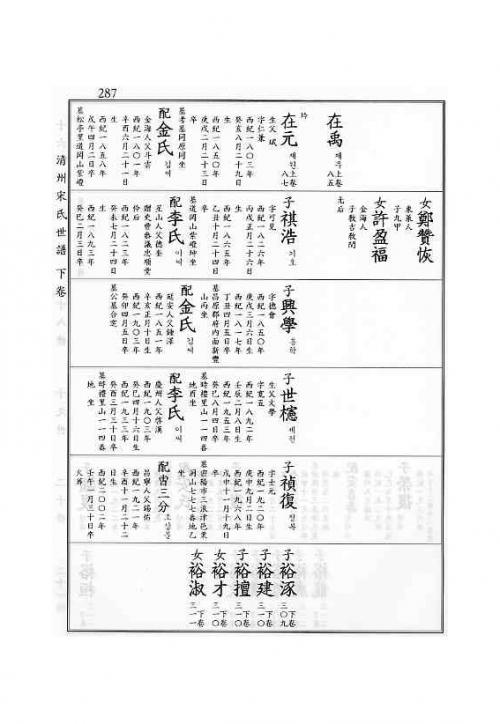 287
清州宋氏世譜 下卷
在禹 재우 上卷 八五
女 鄭贊恢
東萊人
子九甲
女 許盈福
金海人
子敎吉敎閏
元后
在元 재원 上卷 八七
生父 斌
字仁兼
西紀一八〇三年
癸亥八月二十九日
生
西紀一八五〇年
庚戌二月二十三日
卒
墓考墓同原同坐
配金氏 김씨
金海人父斗雲
西紀一八〇一年
辛酉六月二十一日
生
西紀一八五八年
戊午四月二日卒
墓松亭里道岡山紫嶝
子 祺浩 기호
字可見
西紀一八二六年
丙戌正月二十六日
生
西紀一八六五年
乙丑十月二十四日
卒
墓道岡山紫嶝坤坐
配李氏 이씨
星山人父德奎
贈吏曹參議忠順堂
伶后
癸未七月二十四日
生
西紀一八九三年
癸巳二月三日卒
子 興學 흥학
字德會
西紀一八五〇年
庚戌三月六日生
西紀一八一七年
丁丑四月五日卒
墓昌原郡府內面新豊
山丙坐
配金氏 김씨
延安人父鍾淳
西紀一八五一年
辛亥正月十日生
西紀一九〇三年
癸卯四月五日卒
墓公墓合窆
子 世櫶 세헌
生父文學
字寬五
西紀一八九二年
壬辰二月八日生
西紀一九五三年
癸巳八月四日卒
墓時禮里山一一四番
地酉坐
配李氏 이씨
慶州人父啓漢
西紀一九〇三年
癸巳四月十六日生
西紀一九三三年
癸酉三月三十日卒
墓時禮里山一一四番
地 坐
子 禎復 정복
字士元
西紀一九二〇年
庚申九月二日生
西紀一九六八年
戊申十一月十九日
卒
墓密陽市三浪津邑栗
洞山七七七番地乙
坐
配曺三分 조삼분
昌寧人父錫佑
西紀一九二一年
辛酉十一月二十二
日生
西紀二〇〇二年
壬午一月三十日卒
火葬
子 裕涿 下卷 三〇九
子 裕建 下卷 三一〇
子 裕擅 下卷 三一〇
女 裕才 下卷 三一〇
女 裕淑 下卷 三一一